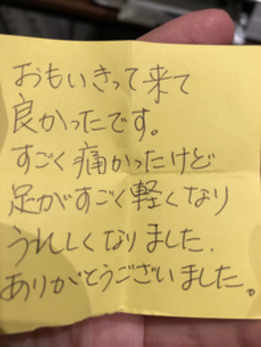 おもいきって来て
良かったです。
すごく痛かったけど
足がすごく軽くなり
うれしくなりました.
ありがとうございました。